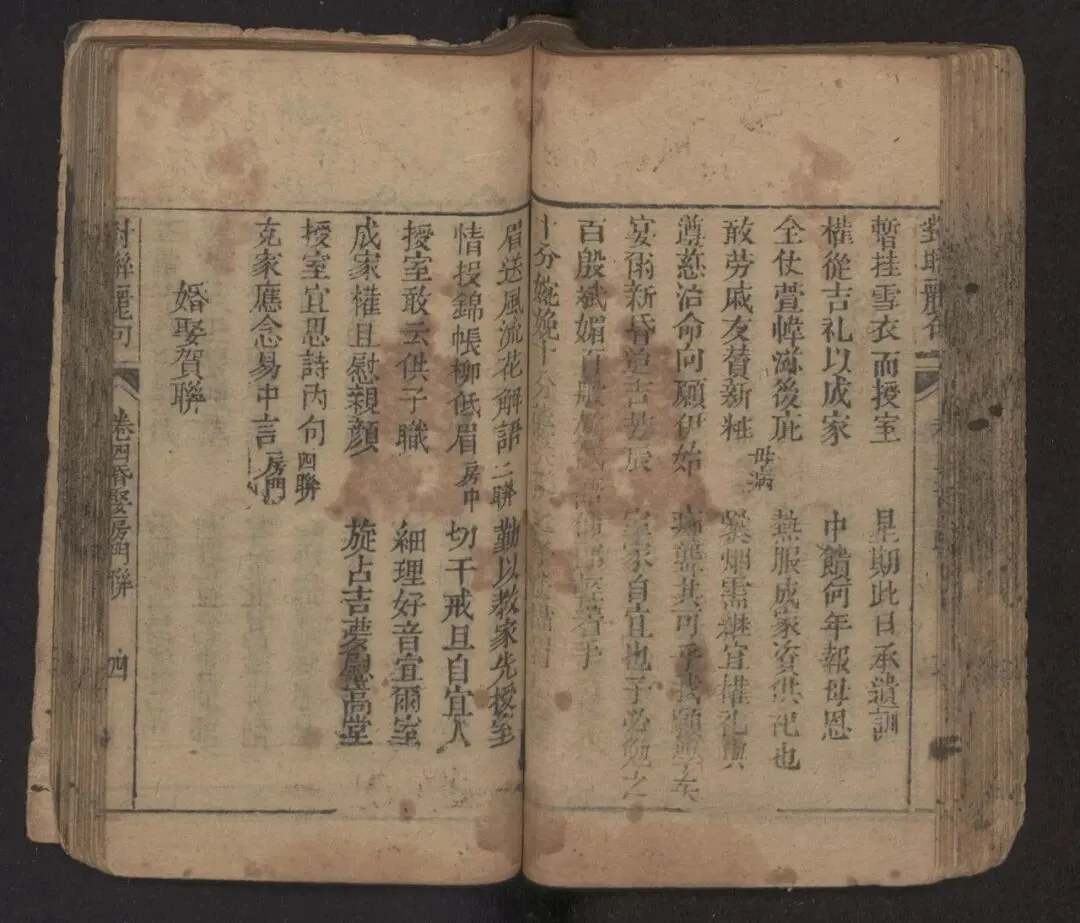 對聯麗句
暫挂雪衣而授室 星期此日承遺訓
權從吉礼以成家 中饋何年報母恩
全仗萱幃滋後庇 母滿 熱服成家資供祀也
敢劳戚友賛新粧 爨烟需継宜權礼與
遵慈治命向願伊始 其可乎我願學矣
宴尔新昏 吉 辰 室家自宜也子必勉之
百般斌媚百般 手
十分婉娩十分
眉送風流花解語 二聯 勤以教家先授室
情授錦帳柳低眉 房中 切干戒旦自宜人
授室敢云供子職 細理好音宜爾室
成家權且慰親顔 旋占吉夢慰高堂
授室宜思詩丙句 四聯
克家應念易中言 房門
婚娶賀聯
對聯麗句 卷四婚娶房門聯 四